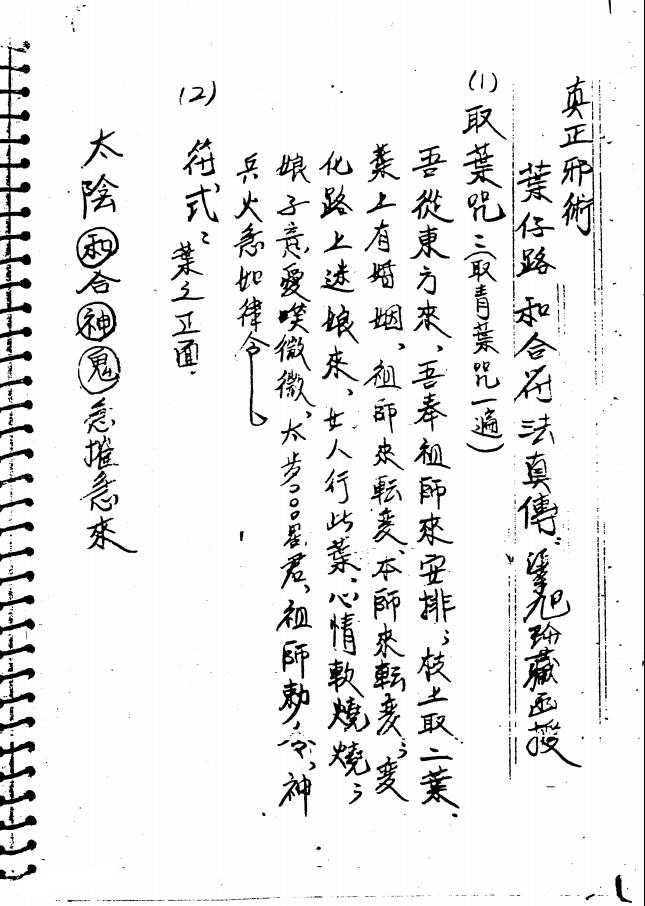 真正邪術
葉仔路和合符法真傳:梁旭珍藏函授
(1) 取葉咒:(取青葉咒一遍)
吾從東方來、吾奉祖師來安排;枝上取二葉、
葉上有婚姻、祖師來転変、本師來転変;変
化路上迷娘來、女人行此葉、心情軟燒燒;
娘子意愛嘆微微、太歩〇〇星君、祖師勅令、神
兵火急如律令
(2) 符式:葉之正面.
太陰和合神鬼急摧急來